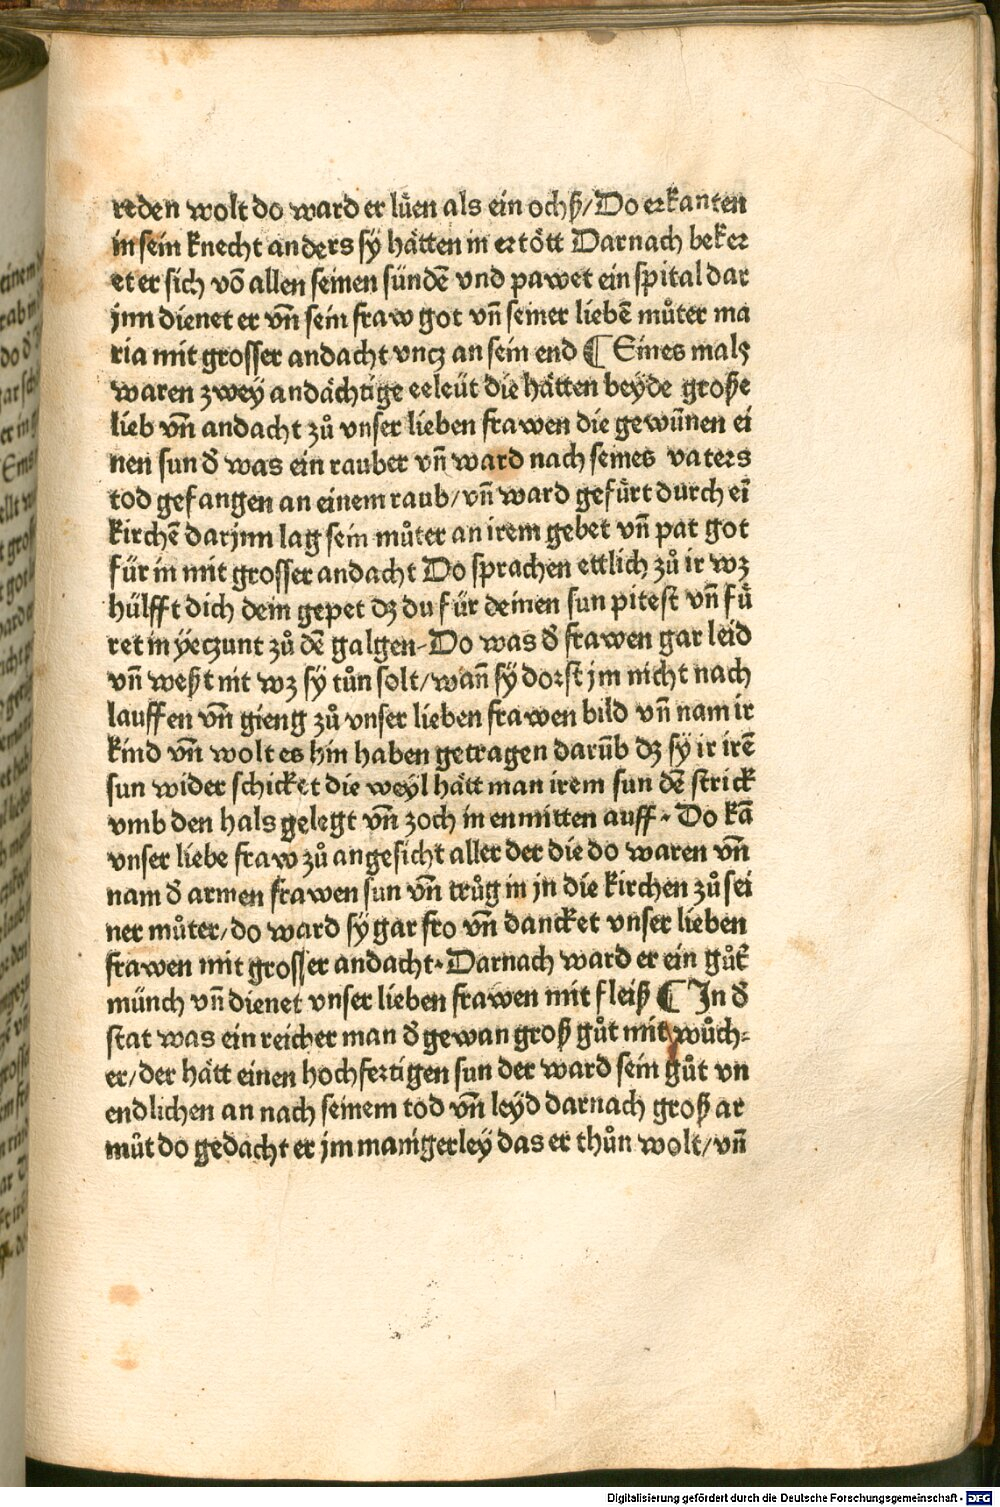 reden wolt do ward er lüen als ein ochß/ Do erkanten
in sein knecht anders sÿ hätten in ertött Darnach beker
et er sich võ allen seinen sündẽ vnd pawet ein spital dar
jnn dienet er vñ sein fraw got vñ seiner liebẽ můter ma
ria mit grosser andacht vncz an sein end ¶ Eines mals
waren zweÿ andächtige eeleüt die hätten beÿde große
lieb vñ andacht zů vnser lieben frawen die gewũnen ei
nen sun đ was ein rauber vñ ward nach seines vaters
tod gefangen an einem raub/ vñ ward gefürt durch eĩ
kirchẽ darjnn lag sein můter an irem gebet vñ pat got
für in mit grosser andacht Do sprachen ettlich zů ir wz
hülfft dich dein gepet dz du für deinen sun pitest vñ fü
ret in ÿeczunt zů dẽ galgen- Do was đ frawen gar leid
vñ weßt nit wz sÿ tůn solt/ wañ sÿ dorst jm nicht nach
lauffen vñ gieng zů vnser lieben frawen bild vñ nam ir
kind vñ wolt es hin haben getragen darũb dz sÿ ir irẽ
sun wider schicket die weÿl hätt man irem sun dẽ strick
vmb den hals gelegt vñ zoch in enmitten auff · Do kã
vnser liebe fraw zů angesicht aller der die do waren vñ
nam đ armen frawen sun vñ trůg in jn die kirchen zů sei
ner můter/ do ward sÿ gar fro vñ dancket vnser lieben
frawen mit grosser andacht· Darnach ward er ein gůt̃
münch vñ dienet vnser lieben frawen mit fleiß ¶ In đ
stat was ein reicher man đ gewan groß gůt mit wůch=
er/ der hätt einen hochfertigen sun der ward sein gůt vn
endlichen an nach seinem tod vñ leÿd darnach groß ar
můt do gedacht er jm manigerleÿ das er thůn wolt/ vñ
Digitalisierung gefördert durch die Deutsche Forschungsgemeinschaft - DFG